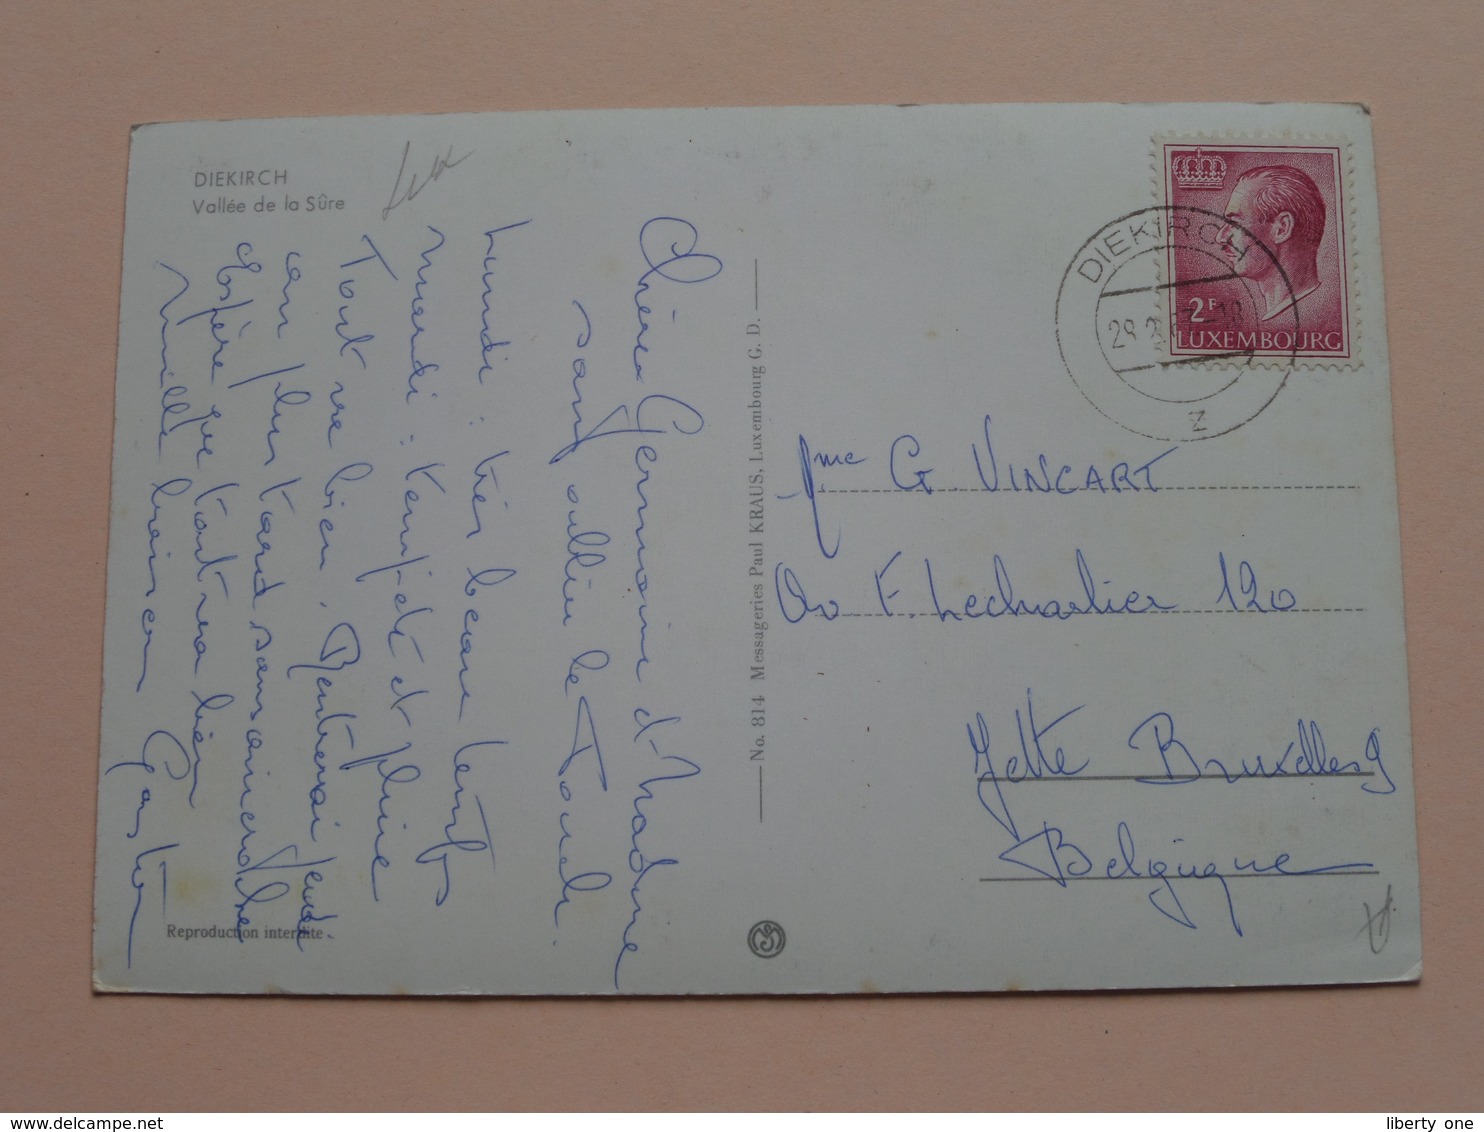 DIEKIRCH
Vallée de la Sûre
Lux
Chère Germaine et Nadine
sans oublier le Touch.
Lundi : très beau temps
Mardi : tempête et pluie
Tout va bien. Rentrerai jeudi
au plus tard sans
Espère que tout va bien
Mille baisers Gaston
Reproduction interdite
No. 814 Messageries Paul KRAUS, Luxembourg G. D.
DIEKIRCH
Z
2F
LUXEMBOURG
Mme G VINCART
Av F. Lecharlier 120
Jette Bruxelles 9
Belgique
liberty one